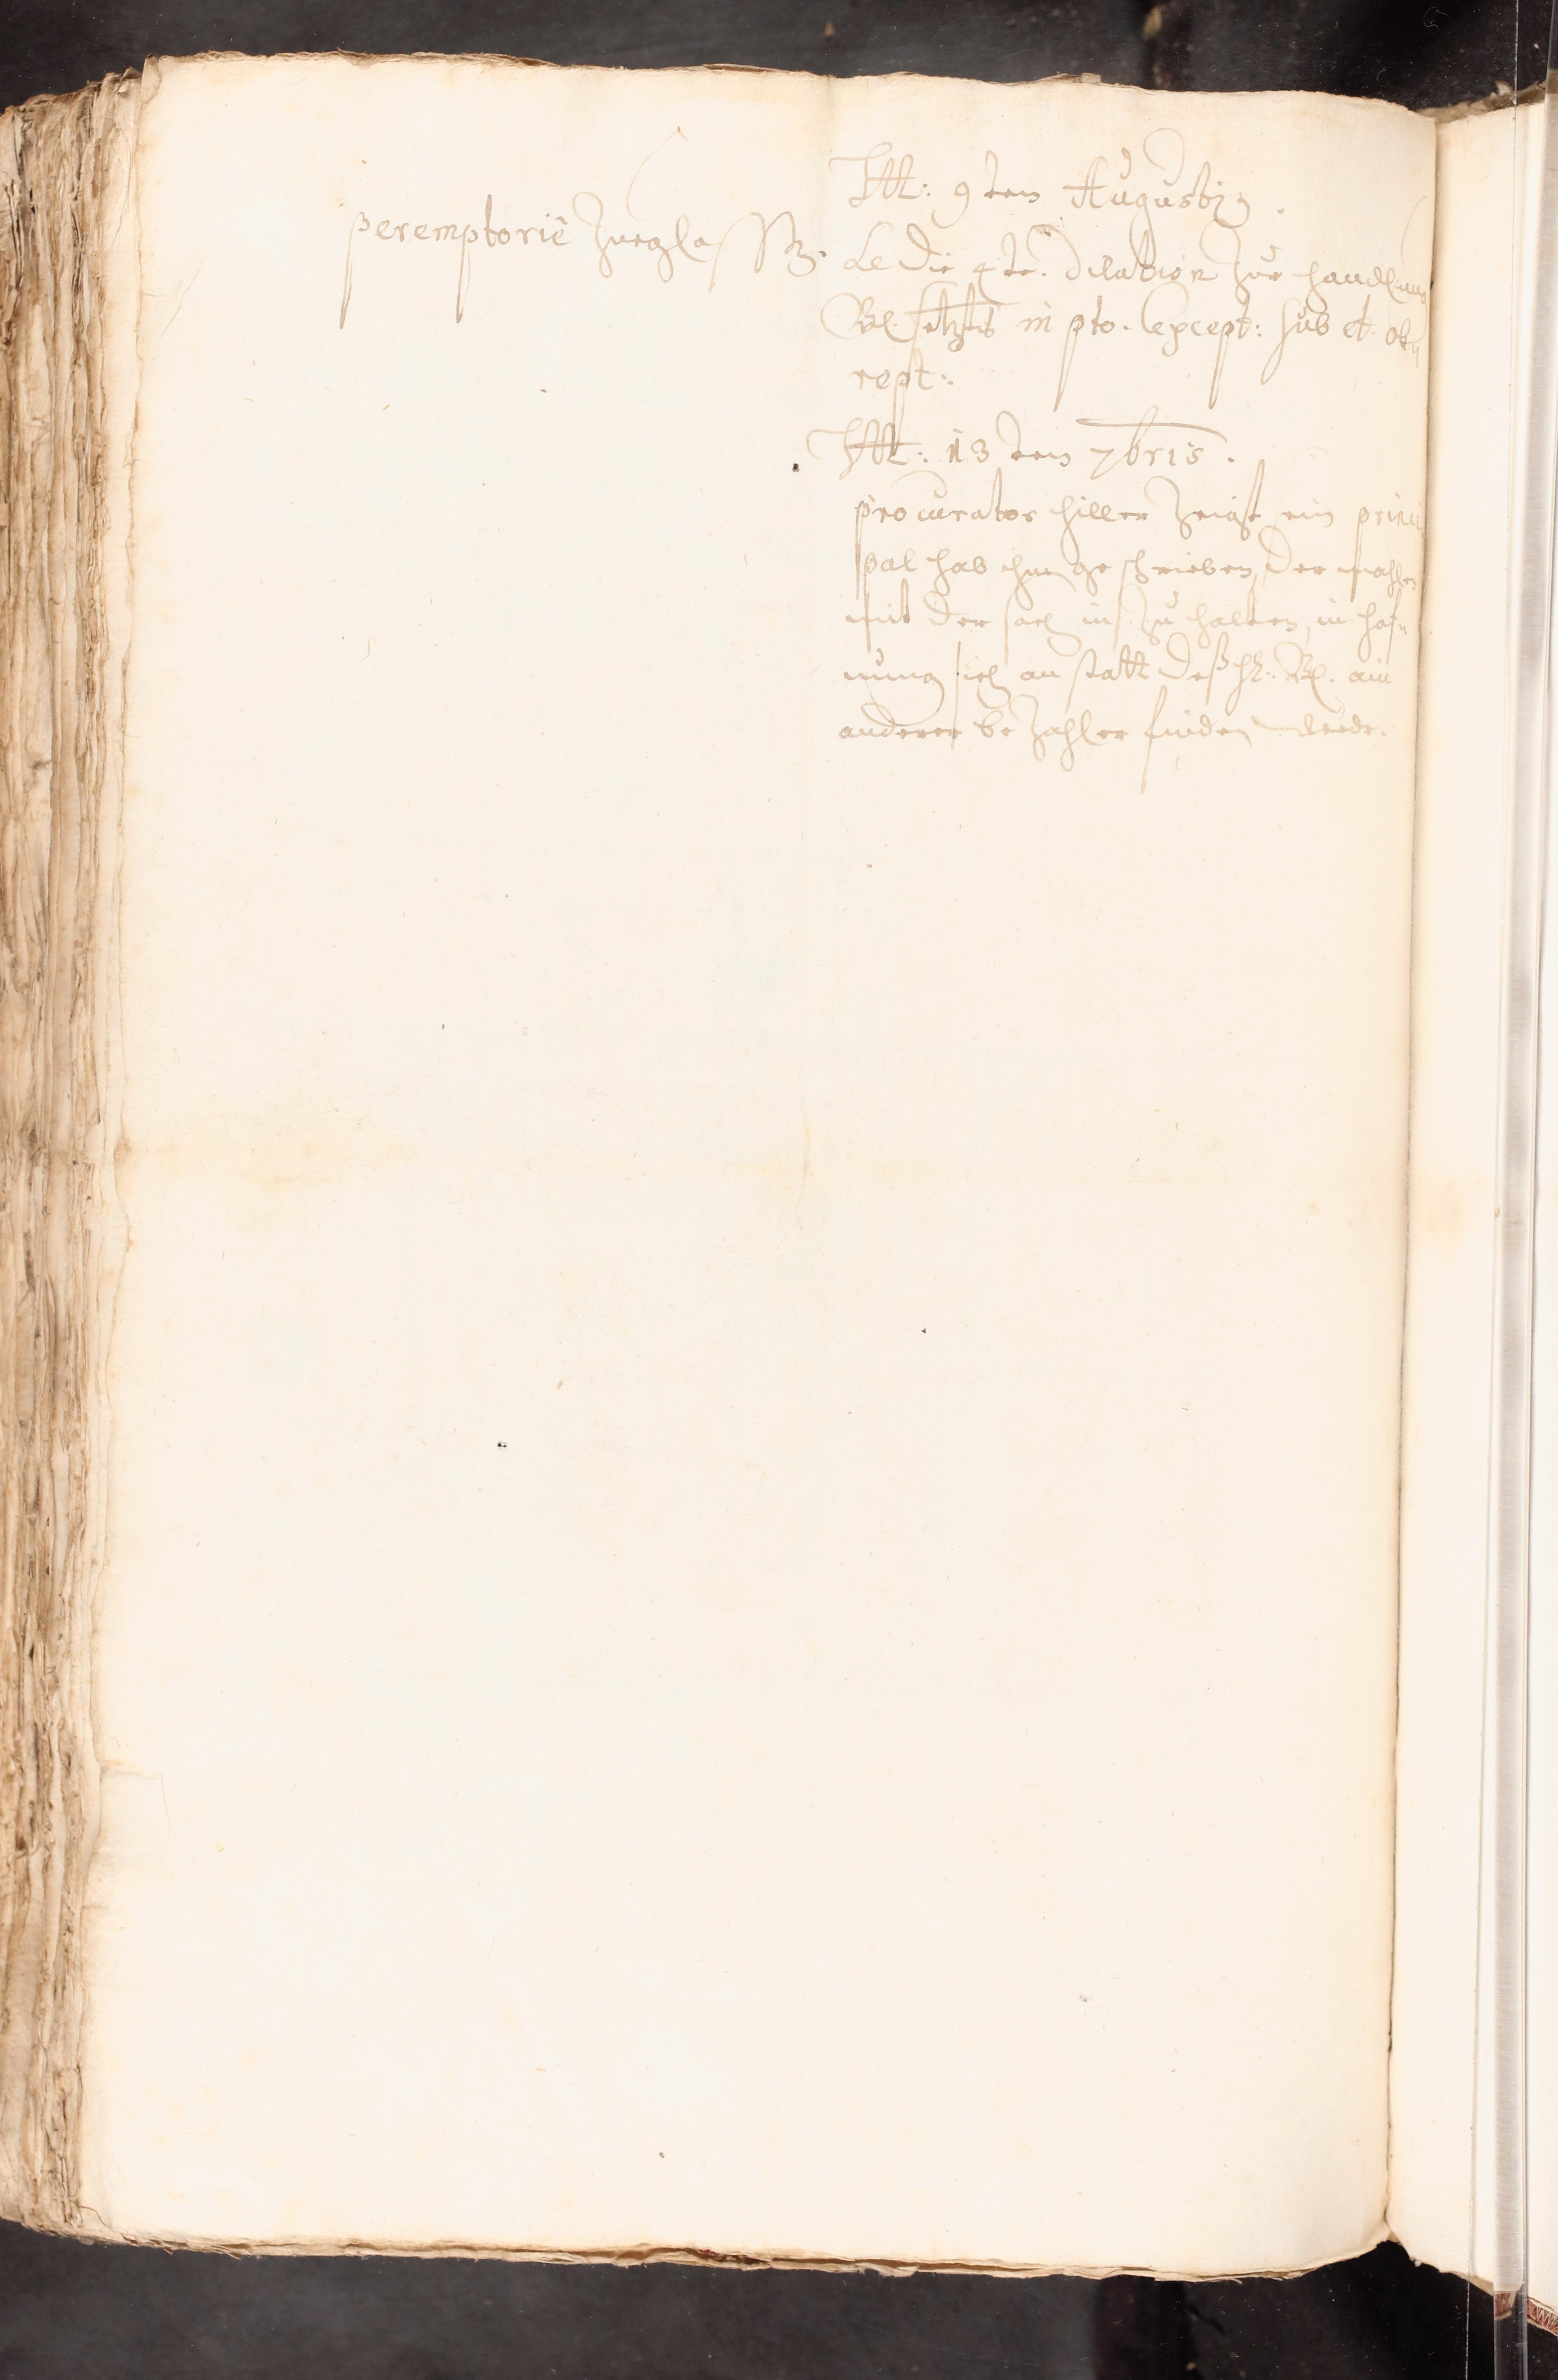 peremptorie Zuegelassen.
Itt: 9ten Augusti 9.
Le die 4te. Dilation Zur handlung
Bl. sethts in pto. Except: sub et ob
rept:.
Itt: 13 ten 7bris.
procurator hiller Zeigt ein princi
pal hab ihm geschrieben, der mahlen
mit der sach in Zu halten, in hof
nung sich an statt deß H. Bl. ain
anderer beZahler finden werde.